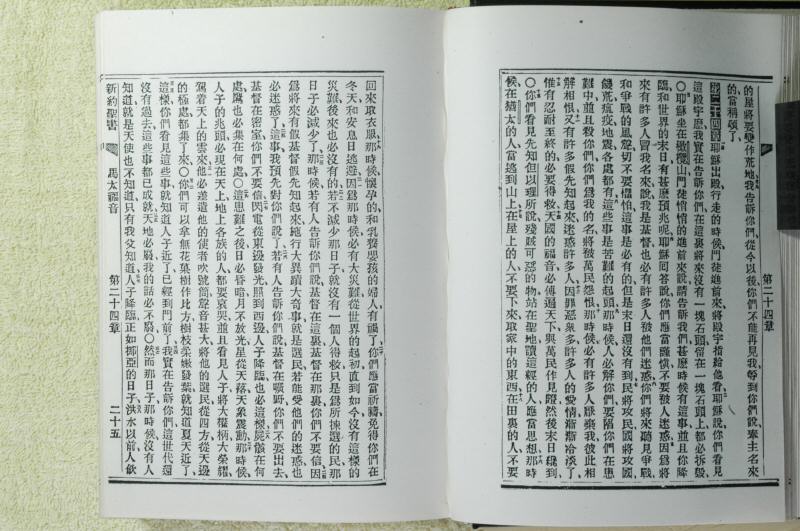 的屋將要變作荒地我告訴你們從今以後你們不能再見我等到你們說奉主名來
的當稱頌了
第二十四章耶穌出殿行走的時候門徒進前來將殿宇指給他看耶穌說你們看見
這殿宇麽我實在告訴你們在這裏將來沒有一塊石頭留在一塊石頭上都必拆毀
○耶穌坐在橄欖山門徒悄悄的進前來說請告訴我們甚麽時候有這事並且你降
臨和世界的末日有甚麽預兆呢耶穌回答說你們應當謹慎不要被人迷惑因爲將
來有許多人冒我名來說我是基督也必有許多人被他們迷惑你們將來聽見爭戰
和爭戰的風聲切不要懼怕這事是必有的但是末日還沒有到民將攻民國將攻國
饑荒瘟疫地震各處都有這些事是苦難的起頭那時候人必解你們要陷你們在患
難中並且殺你們你們爲我的名將被萬民怨恨那時候必有許多人厭棄我彼此相
解相恨又有許多假先知起來迷惑許多人因罪惡衆多許多人的愛情漸漸冷淡了
惟有忍耐至終的必要得救天國的福音必傳遍天下與萬民作見證然後末日纔到
○你們看見先知但以理所說殘賊可惡的物站在聖地讀這經的人應當思想那時
候在猶太的人當逃到山上在屋上的人不要下來取家中的東西在田裏的人不要
第二十四章
回來取衣服那時候懷孕的和乳養嬰孩的婦人有禍了你們應當祈禱免得你們在
冬天和安息日逃避因爲那時候必有大災難從世界的起初直到如今沒有這樣的
災難後來也必沒有的若不減少那日子就沒有一個人得救只是爲所揀選的民那
日子必減少了那時候若有人告訴你們說基督在這裏基督在那裏你們不要信因
爲將來有假基督假先知起來施行大異蹟大奇事就是選民若能受他們的迷惑也
必迷惑了這事我預先對你們說了若有人告訴你們說基督在曠野你們不要出去
基督在密室你們不要信因閃電從東邊發光照到西邊人子降臨也必這樣屍骸在何
處鷹也必集在何處○這患難之後日必昏暗月不放光星從天落天象震動那時候
人子的兆頭必現在天上地上各族的人都要哀哭並且看見人子將大權柄大榮耀
駕着天上的雲來他必差遣他的使者吹號筒聲音甚大將他的選民從四方從天邊
的極處都集了來○你們可以拿無花果樹作比方樹枝柔嫩發葉就知道夏天近了
這樣你們看見這些事就知道人子近了已經到門前了我實在告訴你們這世代還
沒有過去這些事都已成就天地必廢我的話必不廢○然而那日子那時候沒有人
知道就是天使也不知道只有我父知道人子降臨正如挪亞的日子洪水以前人飮
新約聖書
馬太福音
第二十四章
二十五